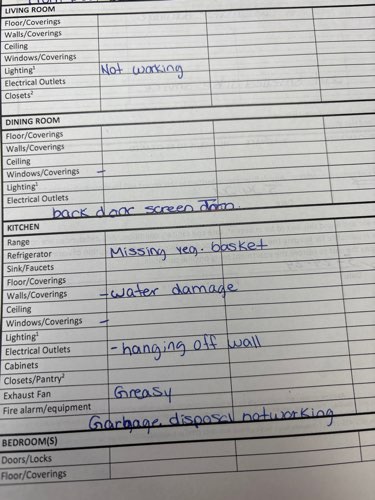 LIVING ROOM
Floor/Coverings
Walls/Coverings
Ceiling
Windows/Coverings
Lighting¹ Not working
Electrical Outlets
Closets²
DINING ROOM
Floor/Coverings
Walls/Coverings
Ceiling
Windows/Coverings –
Lighting¹
Electrical Outlets
back door screen
KITCHEN
Range
Refrigerator Missing veg. basket
Sink/Faucets
Floor/Coverings
Walls/Coverings - water damage
Ceiling
Windows/Coverings –
Lighting¹
Electrical Outlets - hanging off wall
Cabinets
Closets/Pantry²
Exhaust Fan Greasy
Fire alarm/equipment
Garbage disposal not working
BEDROOM(S)
Doors/Locks
Floor/Coverings